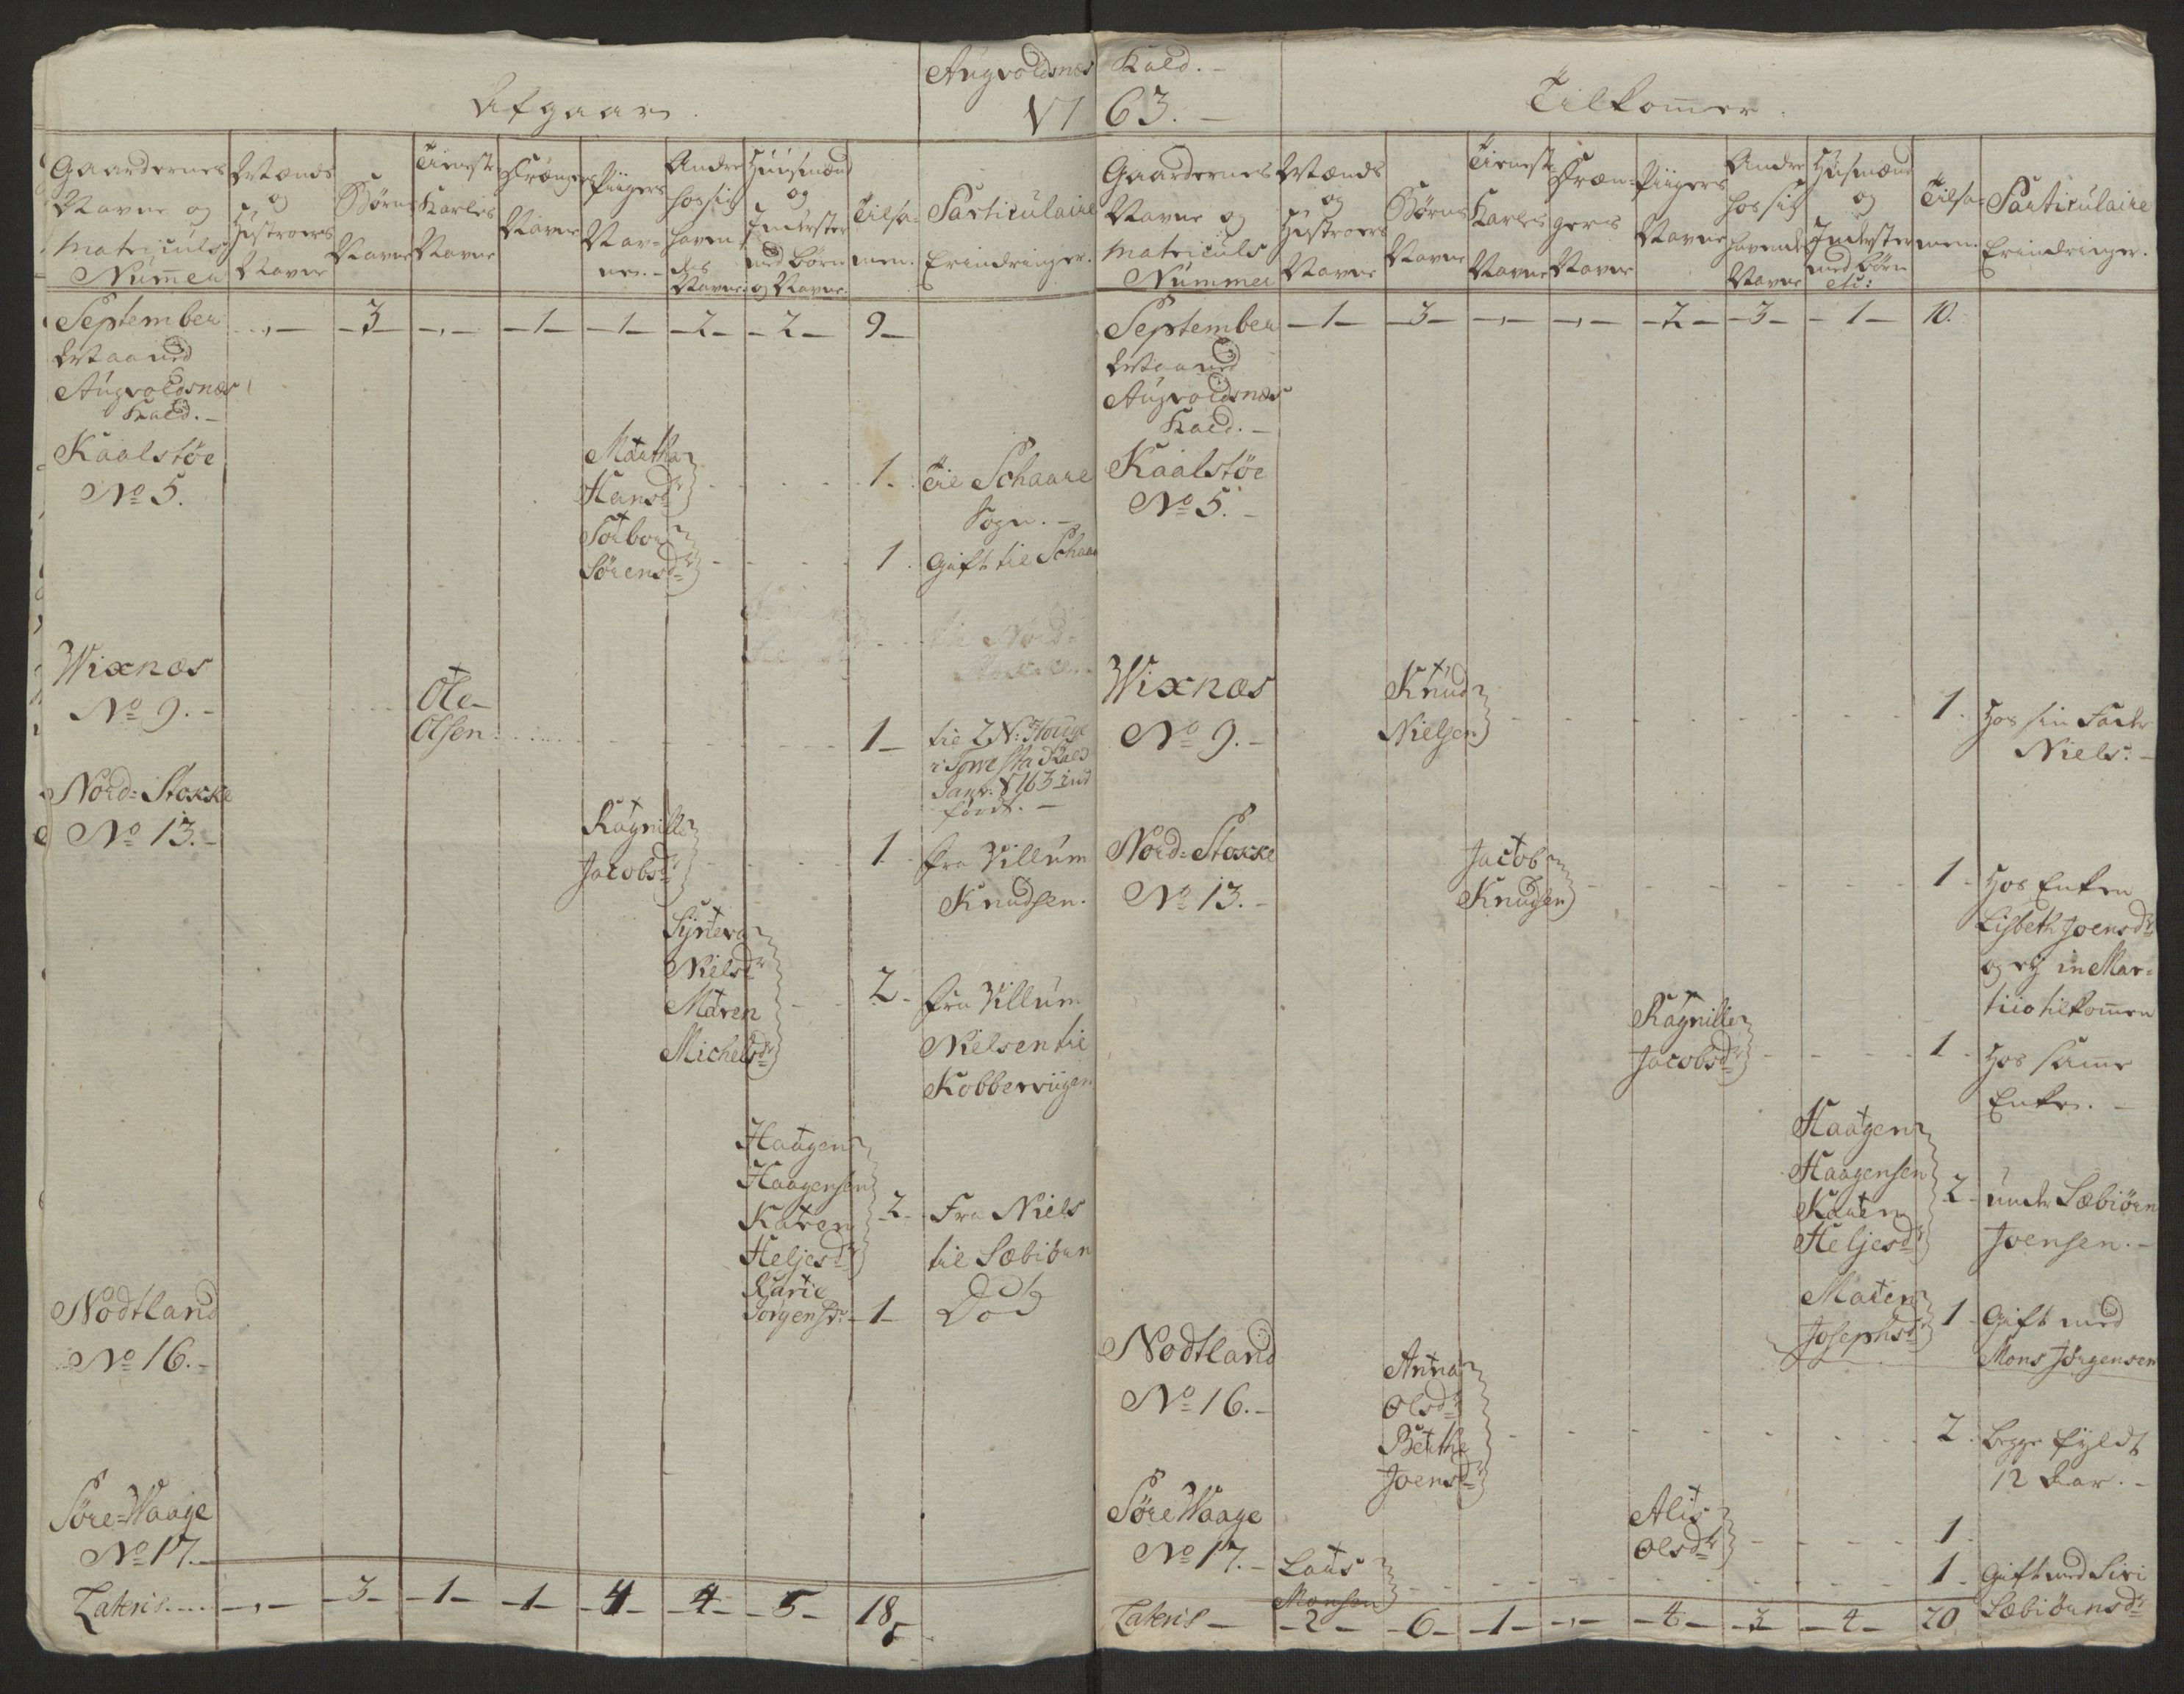 Augvoldsnæs Kald.-
Afgaar.
17 63.-
Tilkommer.
Gaardernes Navne og Matriculs Nummer
Mænds og Hustroers Navne
Børns Navne
Tieneste Karles Navne
Drængers Navne
Piigers Navne.-
Andre hos sig havendes Navne.
Huusmænd og Inderster med børn og Navne.
Tilsammen.
Particulaire Erindringer.
September -,- -3- -,- -1- -1- -2- -2- 9-
Maaned
Augvoldsnæs
Kald.-
Kaalstøe
No 5.
Martha
Hansdr - - - 1. til Schaare
Sogn.-
Torbor
Sørensdr - - - 1. Gift til Schaar
Wixnæs
No 9.-
Ole
Olsen - - - 1- til 2 N: Houge
Janr: 1763 ind
ført.-
Nord-Stokke
No 13.-
Ragnille
Jacobsdr - - - 1 fra Villum
Knudsen.
Synneva
Nielsdr
Maren
Michelsdr - - 2- fra Villum
Nielsen til
Kobberviigen
Haagen
Haagensen
Karen
Heljesdr 2- Fra Niels
til Sæbiørn
Nodtland
No 16.-
Karie
Jørgensdr: -1- Død
Søre-Waage
No 17.-
Lateris.... -,- -3- -1- -1- -4- -4- -5- 18
Gaardernes Navne og Matriculs Nummer
Mænds og Hustroers Navne
Børns Navne
Tieneste Karles Navne
Drængers Navne
Piigers Navne
Andre hos sig havende Navne
Husmænd og Inderster med børn etc:
Tilsammen.
Particulaire Erindringer.
September -1- -3- -,- -,- -2- -3- -1- 10.
Maaned
Augvoldsnæs
Kald.-
Kaalstøe
No 5.-
Wixnæs
No 9.-
Knud
Nielsen - - - 1. Hos sin Fader
Niels.-
Nord-Stokke
No 13.-
Jacob
Knudsen - - - 1- Hos Enken
Lisbeth Joensdr
og ej in Mar-
tiio tilkommen
Ragnille
Jacobsdr - - - 1- Hos samme
Enke.-
Haagen
Haagensen
Karen
Heljesdr 2- under Sæbiørn
Joensen.-
Maren
Josephsdr 1- Gift med
Mons Jørgensen
Nodtland
No 16.-
Anna
Olsdr
Berthe
Joensdr - - - 2. begge fyldt
12 Aar.-
Søre Waage
No 17.-
Alis
Olsdr - - - 1.
Laus
Monsen - - - 1- Gift med Siri
Sæbiørnsdr
Lateris- -2- -6- -1- -,- -4- -3- -4- 20